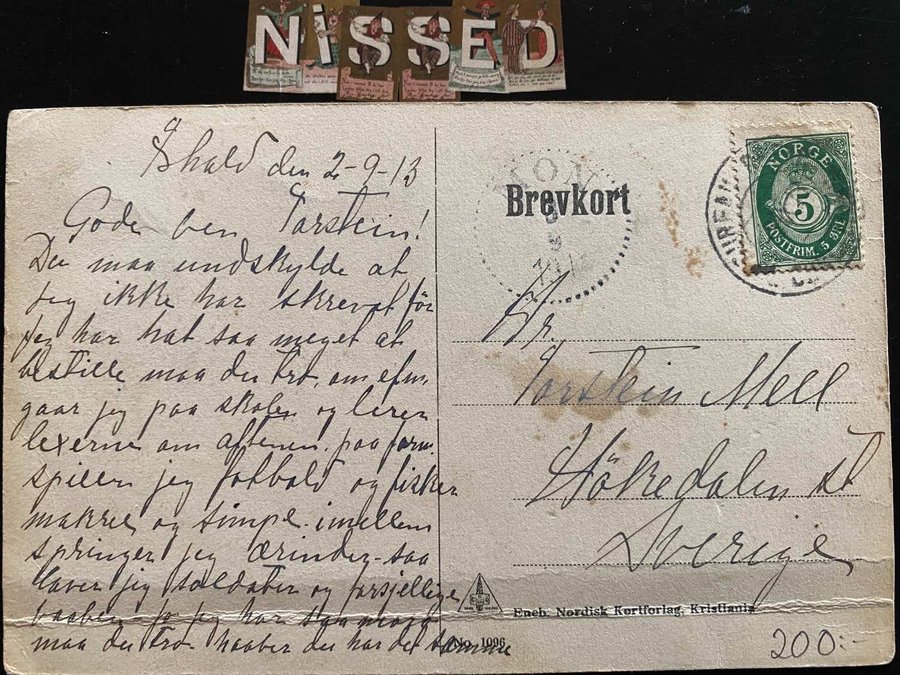 NiSSED
Ghald den 2-9-13
Gode ven Torstein!
Du maa undskylde at
jeg ikke har skrevet för
jeg har hat saa meget at
bestille maa du tro, om efm.
gaar jeg paa skolen og lerer
lexerne om aftenen, paa form.
spiller jeg fotbold og fisker
makrel og simpe. imellem
springer jeg ærinder saa
laver jeg soldater og forsjellige
vaaben jo jeg har saa meget
maa du tro haaber du har det samme
Brevkort
NORGE
5
POSTFRIM. 5 ØRE
Hr.
Torstein Mell
Hökedalen st
Sverige
Eneb. Nordisk Kortforlag, Kristiania
No. 1096
200:-